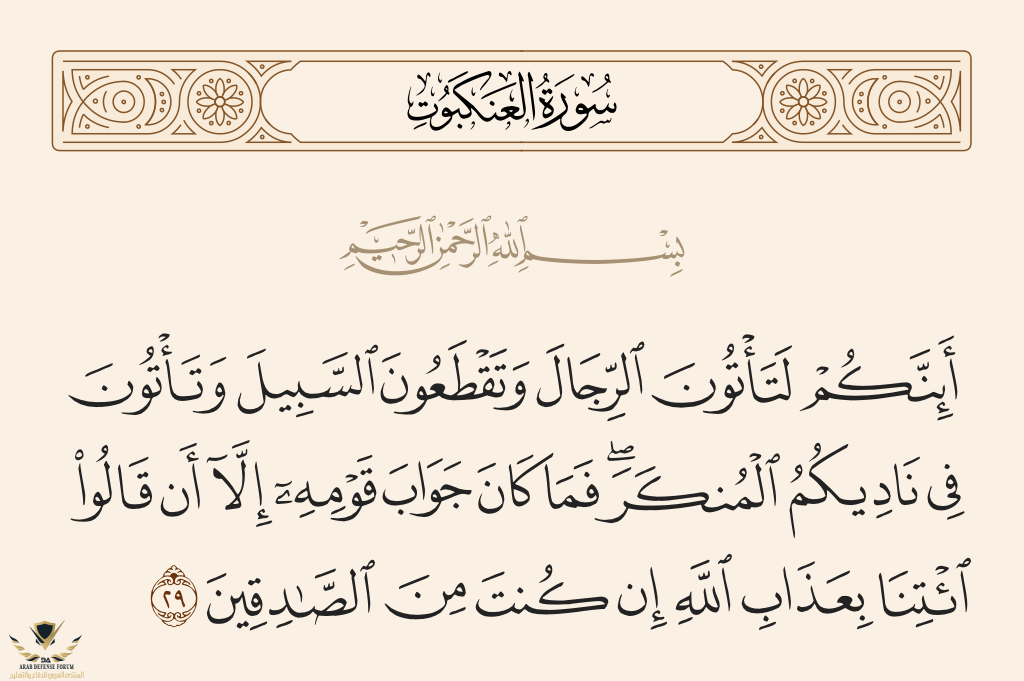 سُورَةُ العَنكَبُوتِ
بِسْمِ ٱللَّهِ ٱلرَّحْمَٰنِ ٱلرَّحِيمِ
أَئِنَّكُمْ لَتَأْتُونَ ٱلرِّجَالَ وَتَقْطَعُونَ ٱلسَّبِيلَ وَتَأْتُونَ
فِى نَادِيكُمُ ٱلْمُنكَرَ ۖ فَمَا كَانَ جَوَابَ قَوْمِهِۦٓ إِلَّآ أَن قَالُوا۟
ٱئْتِنَا بِعَذَابِ ٱللَّهِ إِن كُنتَ مِنَ ٱلصَّٰدِقِينَ ٢٩
DA
ARAB DEFENSE FORUM
المنتدى العربي للدفاع والتسليح